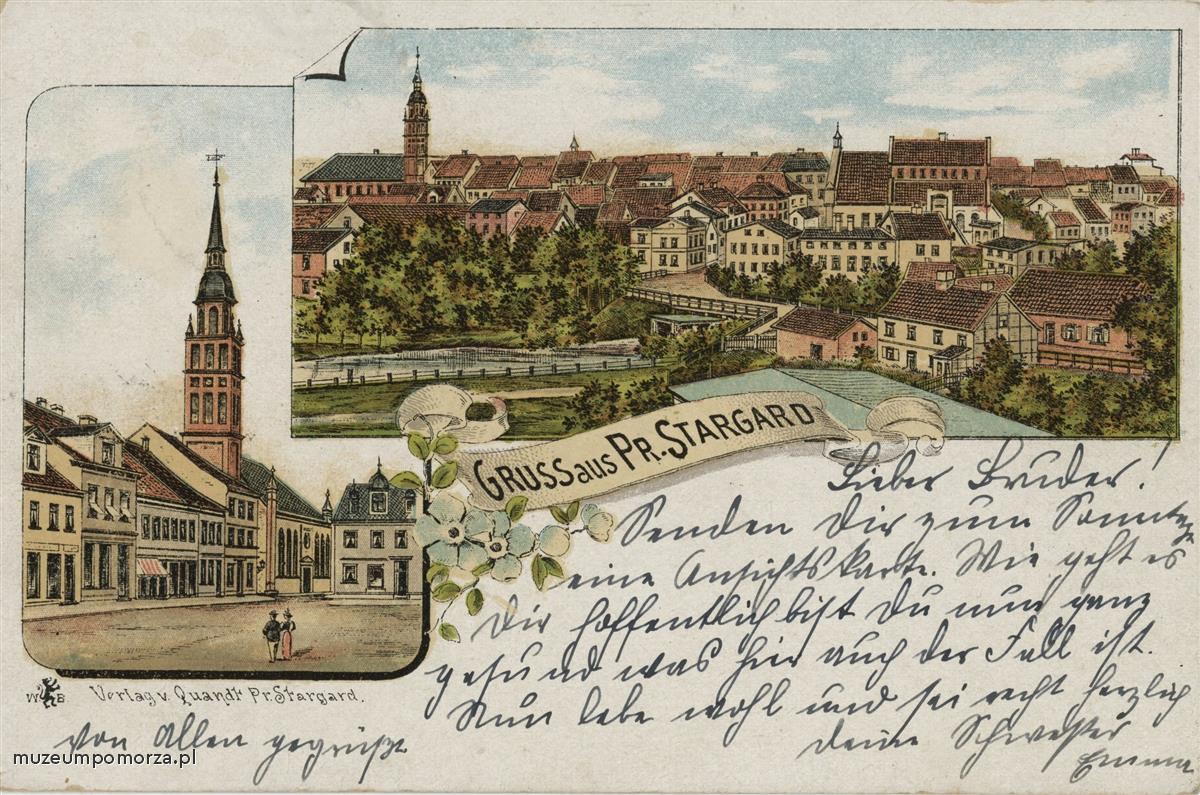 GRUSS aus PR. STARGARD
Lieber Bruder!
Senden Dir zum Sonntage
eine Ansichtskarte. Wie geht es
Dir hoffentlich bist Du nun ganz
gesund was hier auch der Fall ist.
Nun lebe wohl und sei recht herzlich
von Allen gegrüßt
deine Schwester
Emma
W B
Verlag v. Quandt Pr. Stargard.
muzeumpomorza.pl